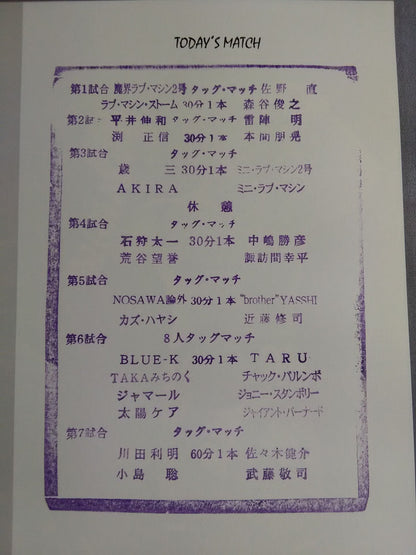 TODAY'S MATCH
第1試合 魔界ラブ・マシン2号 タッグ・マッチ 佐野 直
ラブ・マシン・ストーム 30分1本 森谷俊之
第2試合 平井伸和 タッグ・マッチ 雷陣 明
渕 正信 30分1本 本間朋晃
第3試合 タッグ・マッチ
歳 三 30分1本 ミニ・ラブ・マシン2号
AKIRA ミニ・ラブ・マシン
休 憩
第4試合 タッグ・マッチ
石狩太一 30分1本 中嶋勝彦
荒谷望誉 諏訪間幸平
第5試合 タッグ・マッチ
NOSAWA論外 30分1本 "brother"YASSHI
カズ・ハヤシ 近藤修司
第6試合 8人タッグマッチ
BLUE-K 30分1本 TARU
TAKAみちのく チャック・パルンボ
ジャマール ジョニー・スタンボリー
太陽ケア ジャイアント・バーナード
第7試合 タッグ・マッチ
川田利明 60分1本 佐々木健介
小島 聡 武藤敬司